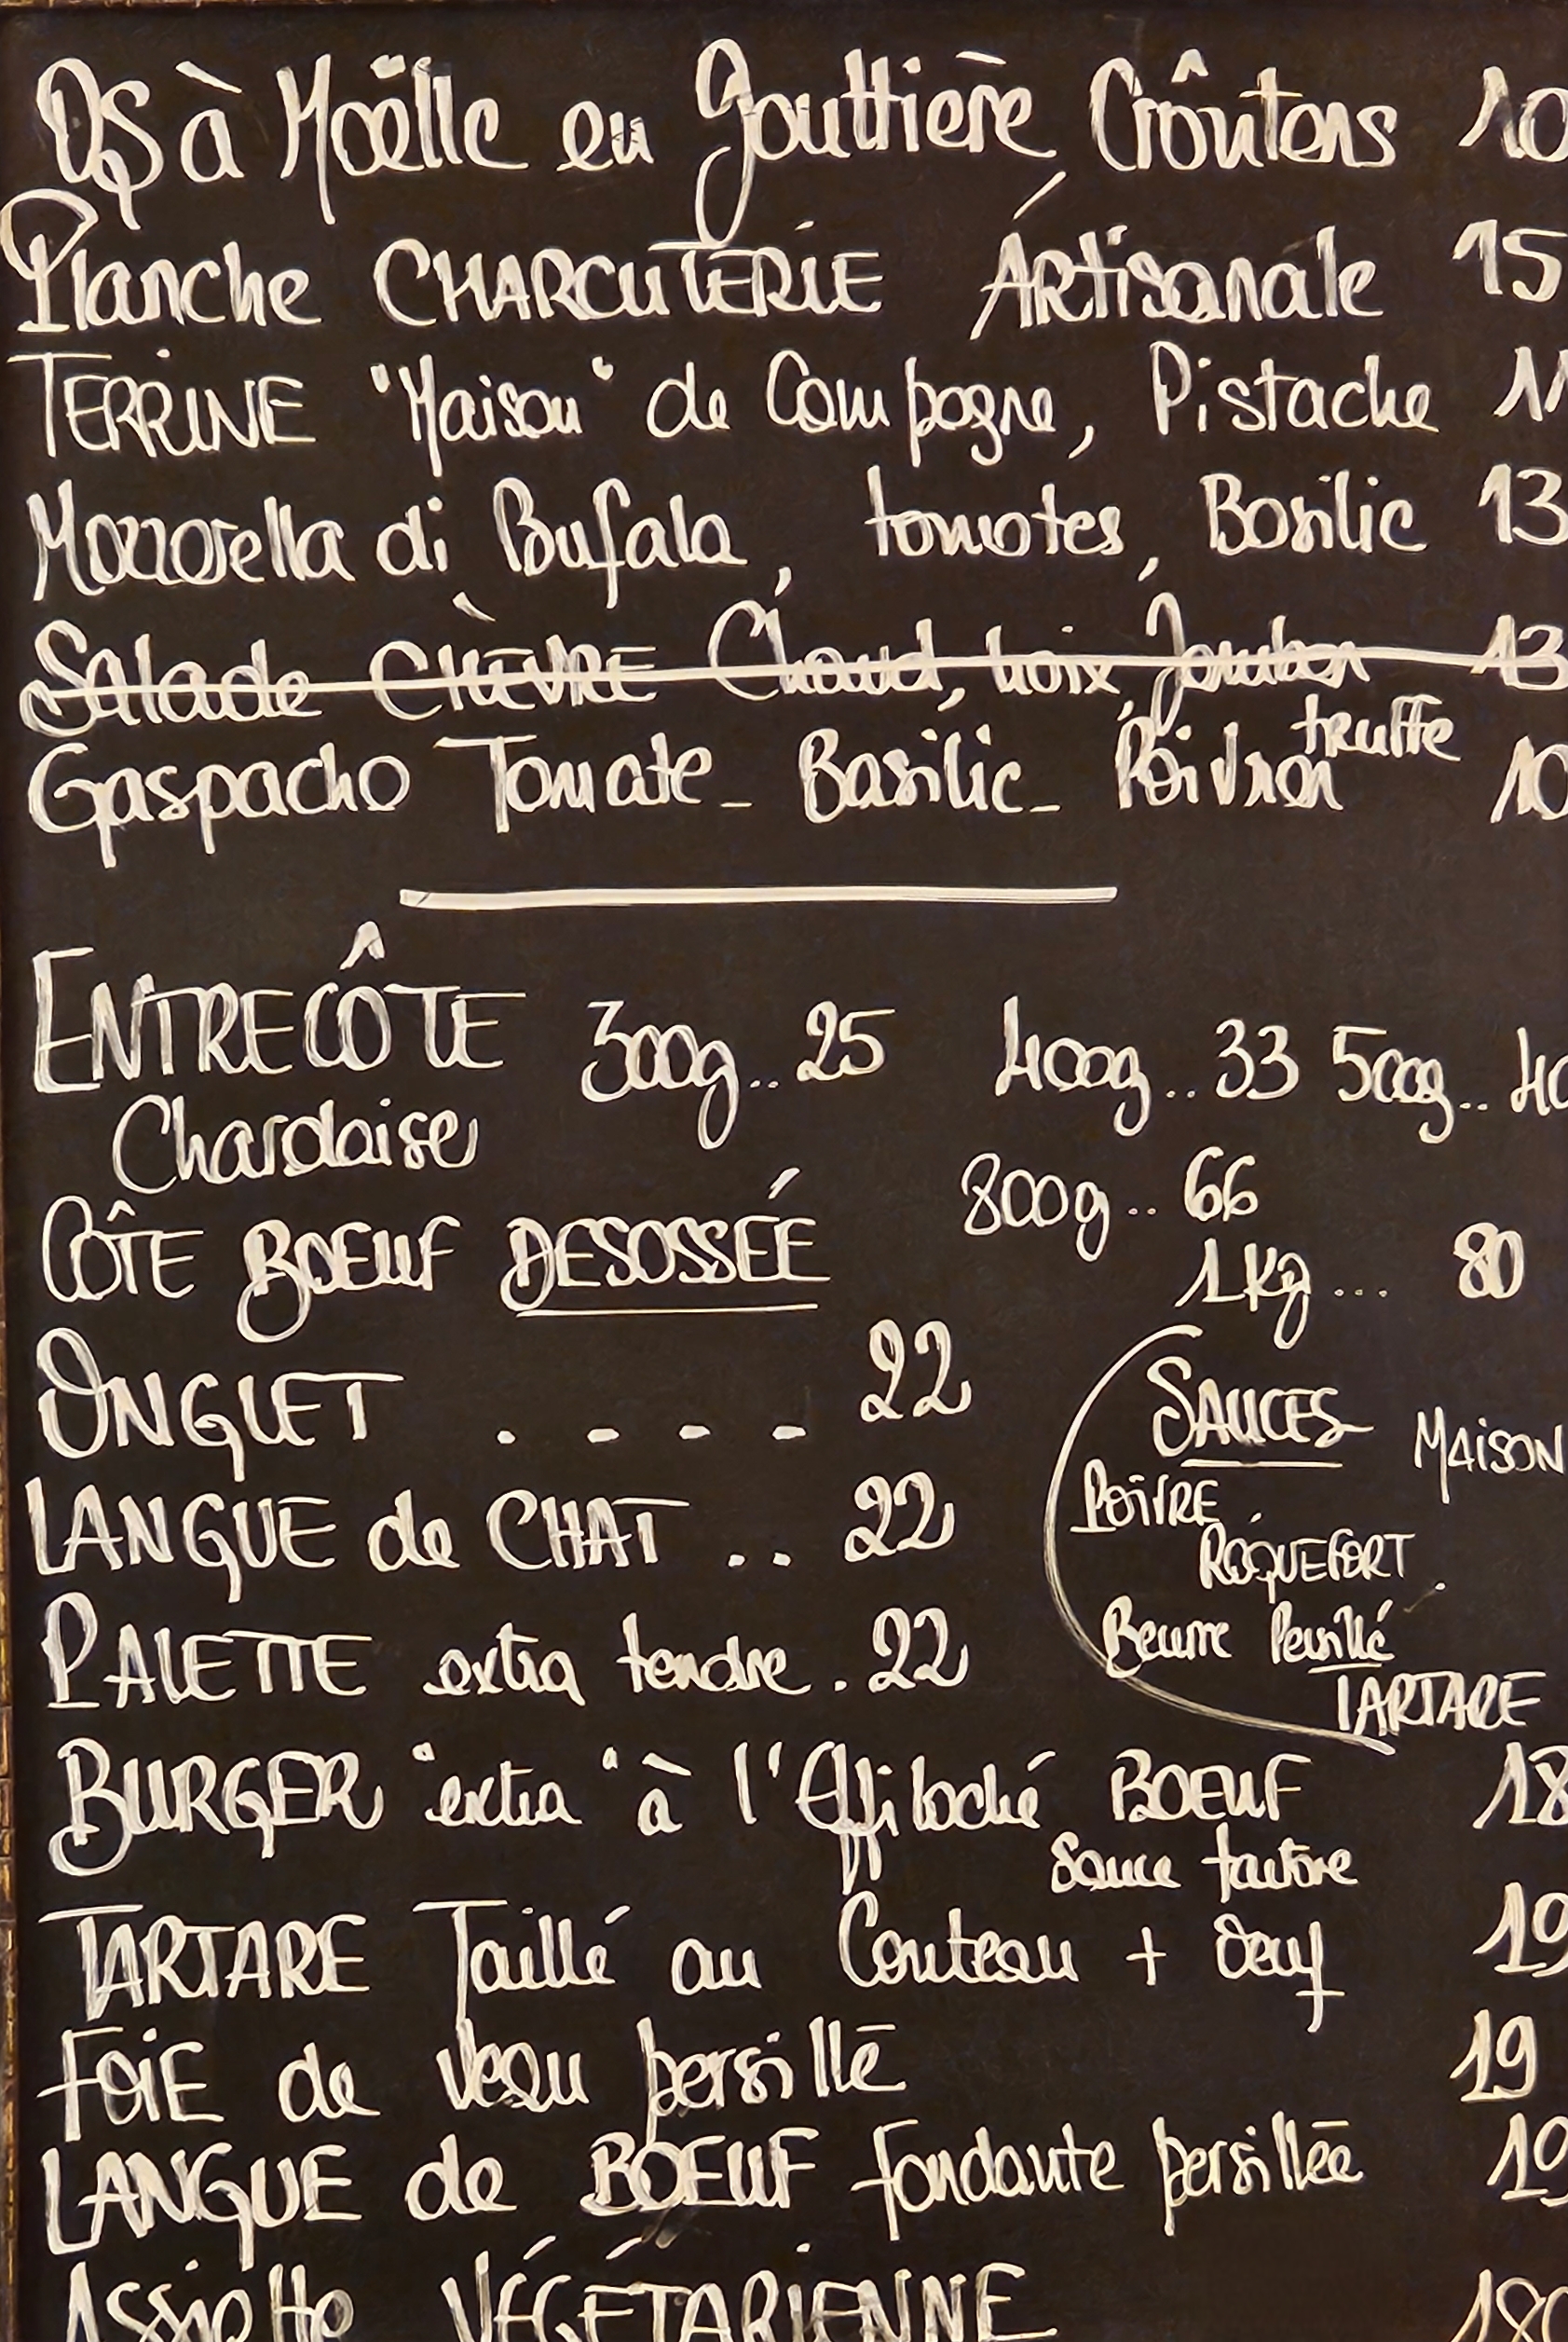 Os à Moëlle en gouttière Croûtons 10
Planche CHARCUTERIE Artisanale 15
TERRINE "Maison" de Campagne, Pistache 11
Mozzarella di Bufala, tomates, Basilic 13
Salade CHÈVRE Chaud, noix, Jambon 13
truffe
Gaspacho Tomate - Basilic - Poivron 10
ENTRECÔTE 300g.. 25 400g.. 33 500g.. 40
Chardaise
800g.. 66
CÔTE BOEUF DESOSSÉE
1Kg... 80
ONGLET .... 22
SAUCES MAISON
LANGUE de CHAT .. 22
POIVRE
ROQUEFORT
PALETTE extra tendre . 22
Beurre Persillé
TARTARE
BURGER "extra" à l'Effiloché BOEUF 18
sauce tartare
TARTARE Taillé au Couteau + Oeuf 19
FOIE de Veau persillé 19
LANGUE de BOEUF fondante persillée 19
Assiette VÉGÉTARIENNE 18